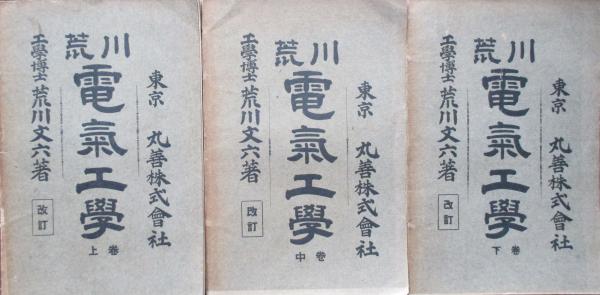 荒川
東京 丸善株式會社
電氣工學
上卷
工學博士 荒川文六著
改訂
荒川
東京 丸善株式會社
電氣工學
中卷
工學博士 荒川文六著
改訂
荒川
東京 丸善株式會社
電氣工學
下卷
工學博士 荒川文六著
改訂